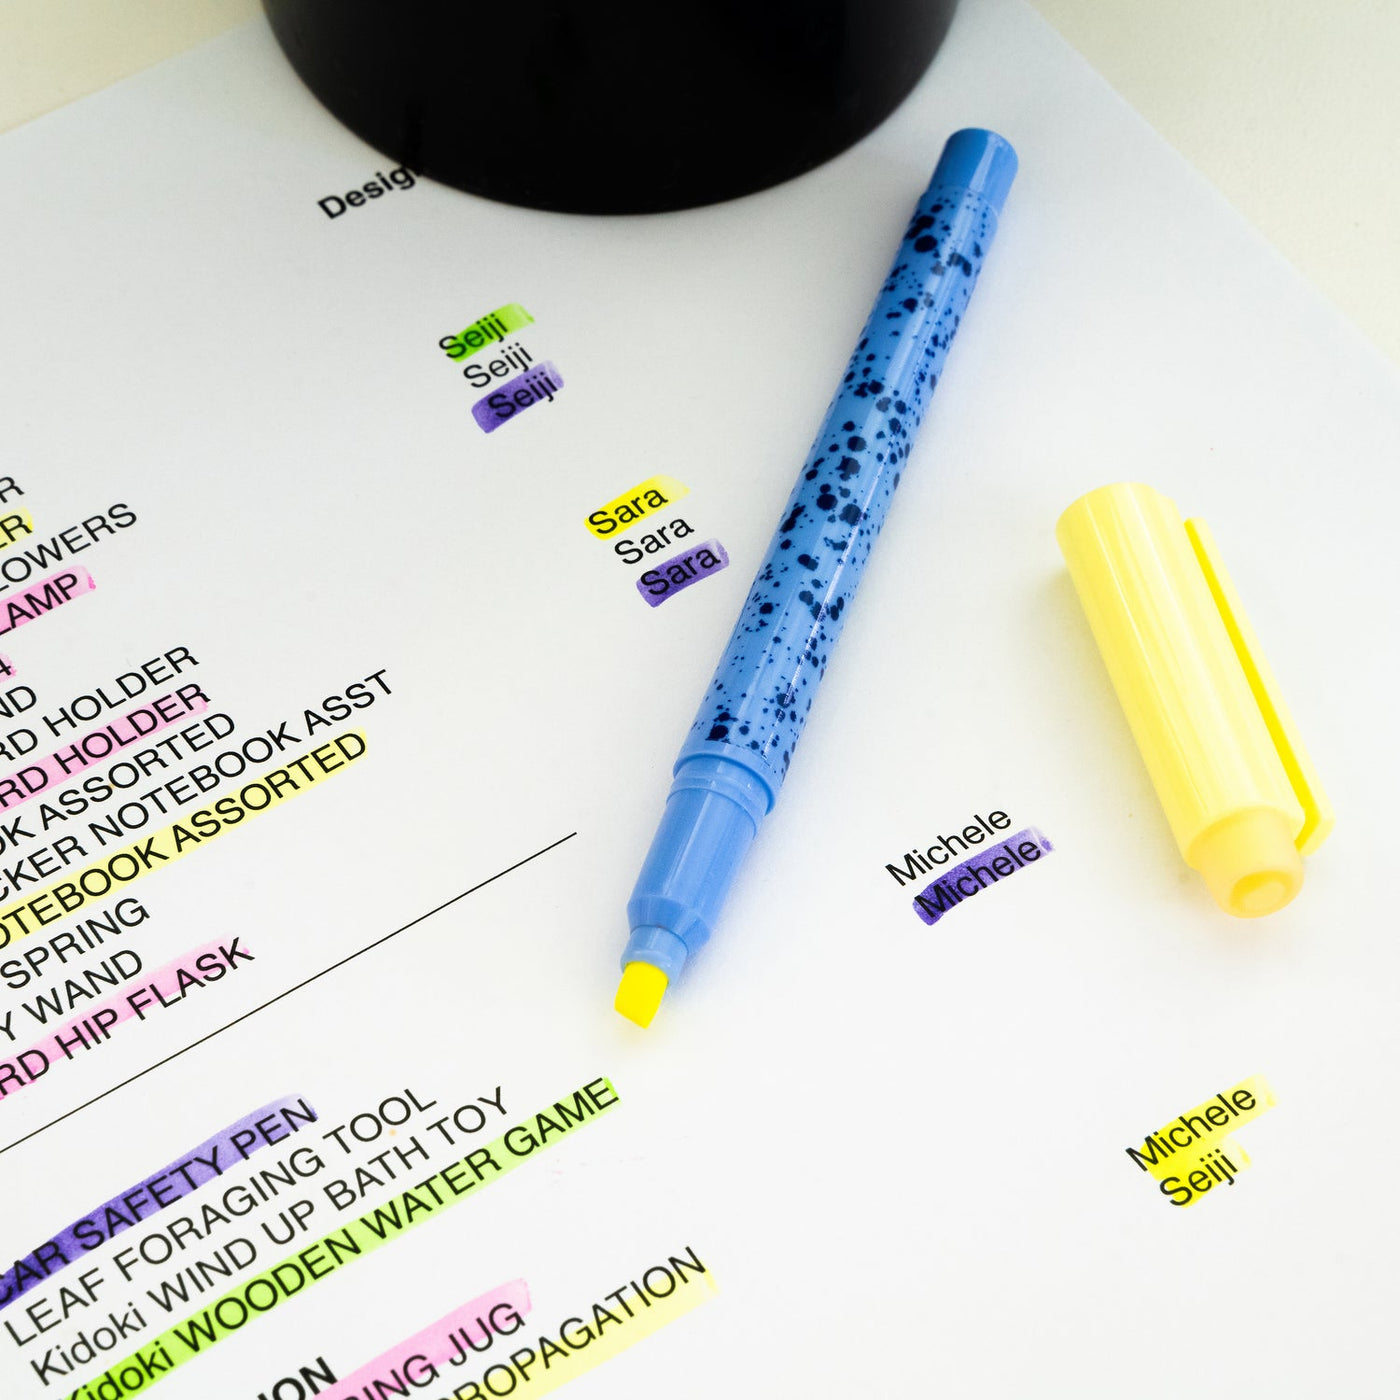 Desig
Seiji
Seiji
Seiji
Sara
Sara
Sara
R
ER
LOWERS
LAMP
4
ND
RD HOLDER
RD HOLDER
OK ASSORTED
CKER NOTEBOOK ASST
OTEBOOK ASSORTED
SPRING
Y WAND
RD HIP FLASK
Michele
Michele
CAR SAFETY PEN
LEAF FORAGING TOOL
Kidoki WIND UP BATH TOY
Kidoki WOODEN WATER GAME
Michele
Seiji
ION
RING JUG
ROPAGATION